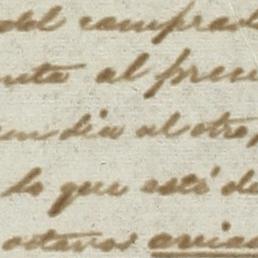 del comprad
nta al prec
un dia al otro,
lo que está de
octavos avisa